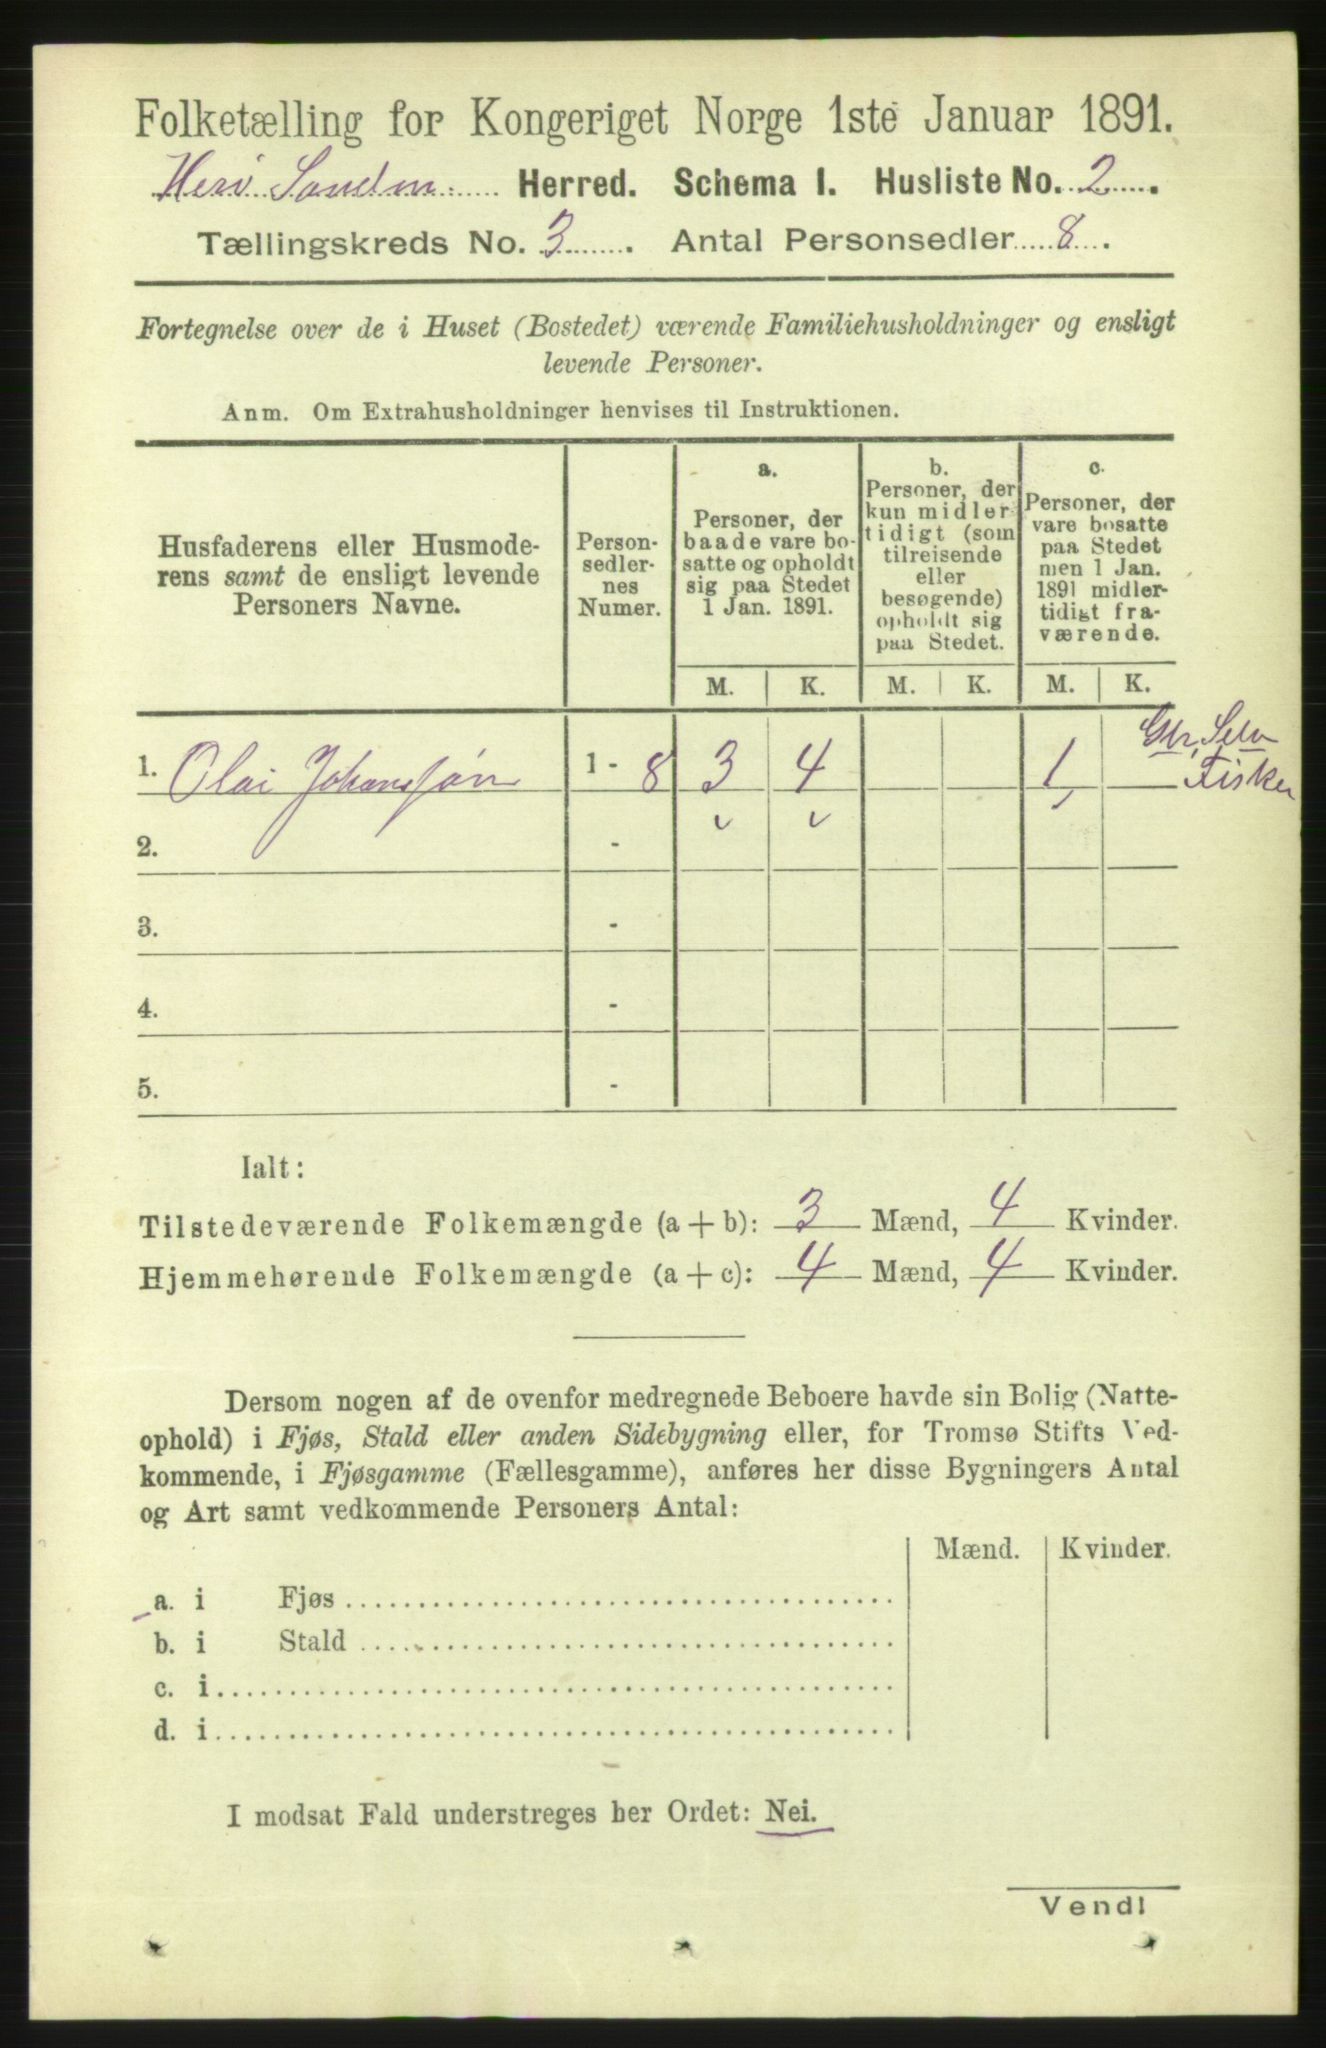 Folketælling for Kongeriget Norge 1ste Januar 1891.
Herred. Schema I. Husliste No. 2.
Tællingskreds No. 3. Antal Personsedler 8.
Fortegnelse over de i Huset (Bostedet) værende Familiehusholdninger og ensligt
levende Personer.
Anm. Om Extrahusholdninger henvises til Instruktionen.
Husfaderens eller Husmode-
rens samt de ensligt levende
Personers Navne.
Person-
sedler-
nes
Numer.
a.
Personer, der
baade vare bo-
satte og opholdt
sig paa Stedet
1 Jan. 1891.
b.
Personer, der
kun midler
tidigt (som
tilreisende
eller
besøgende)
opholdt sig
paa Stedet.
c.
Personer, der
vare bosatte
paa Stedet
men 1 Jan.
1891 midler-
tidigt fra-
værende.
M. K. M. K. M. K.
1. Olai Johanssøn 1 - 8 3 4 1
Fisker
2. -
3. -
4. -
5. -
Ialt:
Tilstedeværende Folkemængde (a + b): 3 Mænd, 4 Kvinder.
Hjemmehørende Folkemængde (a + c): 4 Mænd, 4 Kvinder.
Dersom nogen af de ovenfor medregnede Beboere havde sin Bolig (Natte-
ophold) i Fjøs, Stald eller anden Sidebygning eller, for Tromsø Stifts Ved-
kommende, i Fjøsgamme (Fællesgamme), anføres her disse Bygningers Antal
og Art samt vedkommende Personers Antal:
Mænd. Kvinder.
a. i Fjøs
b. i Stald
c. i
d. i
I modsat Fald understreges her Ordet: Nei.
Vend!